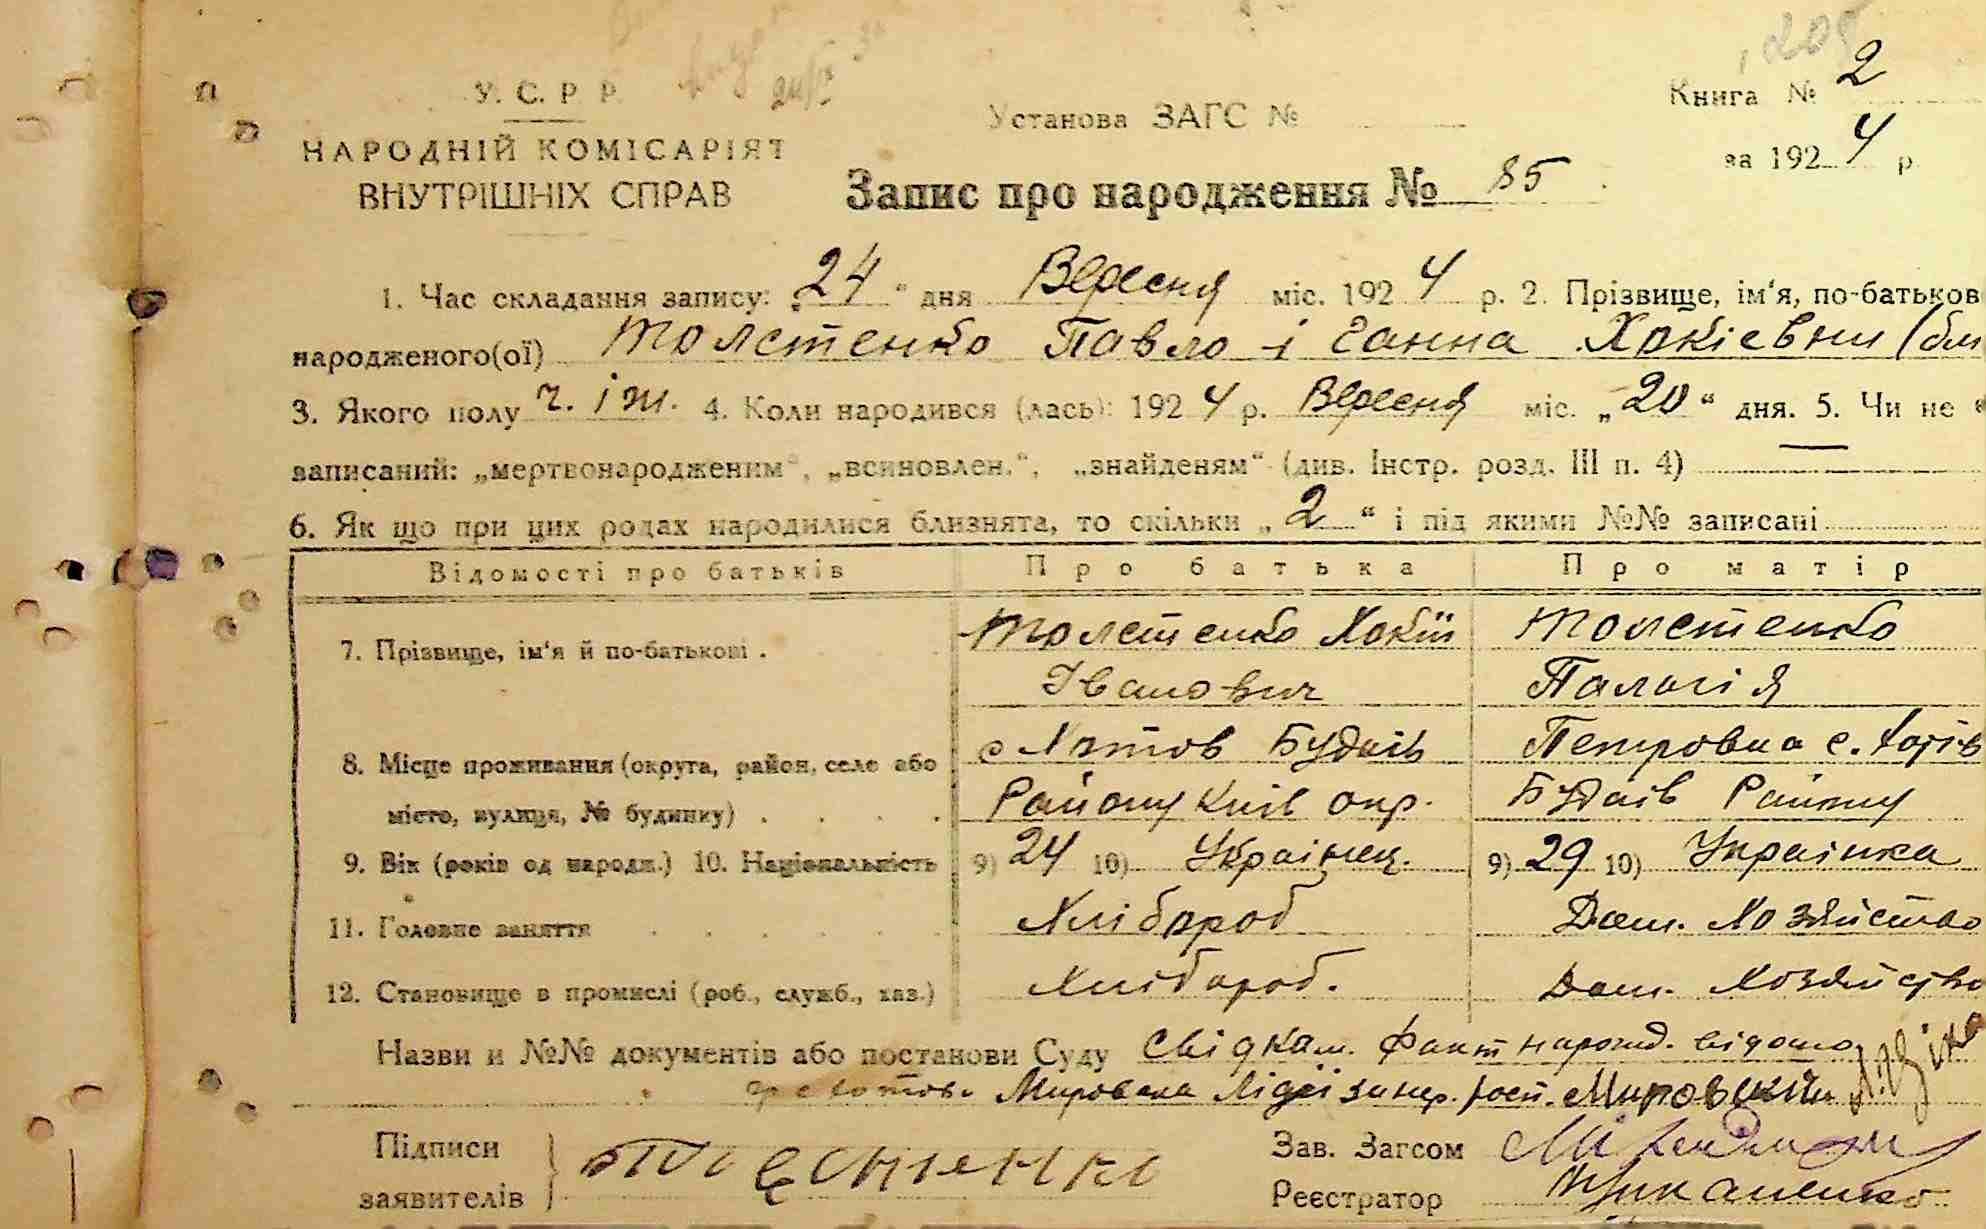 208
У. С. Р. Р.
24/IX
Книга № 2
Установа ЗАГС №
НАРОДНІЙ КОМІСАРІЯТ
за 1924 р.
ВНУТРІШНІХ СПРАВ
Запис про народження № 85
1. Час складання запису: „24“ дня Вересня міс. 1924 р. 2. Прізвище, ім'я, по-батьков
народженого(ої) Толстенко Павло і Ганна Хокієвни (бли
3. Якого полу ч. і ж. 4. Коли народився (лась): 1924 р. Вересня міс. „20“ дня. 5. Чи не
записаний: „мертвонародженим“, „всиновлен.“, „знайденям“ (див. Інстр. розд. III п. 4) —
6. Як що при цих родах народилися близнята, то скільки „2“ і під якими №№ записані
Відомості про батьків Про батька Про матір
7. Прізвище, ім'я й по-батькові . Толстенко Хокій Толстенко
Іванович Палагія
8. Місце проживання (округа, район, село або с Хотов Будаїв Петровна с. Хотів
місто, вулиця, № будинку) . . . . Району Київ окр. Будаїв Району
9. Вік (років од народж.) 10. Національність 9) 24 10) Українец. 9) 29 10) Українка
11. Головне заняття . . . . . . Хлібороб Дом. Хозяйство
12. Становище в промислі (роб., служб., хаз.) Хлібороб. Дом. Хозяйство
Назви и №№ документів або постанови Суду Свідкам. Факт нарожд. відомо
Мировська Лідії Мировский
Підписи Зав. Загсом
заявителів Толстенко
Реєстратор